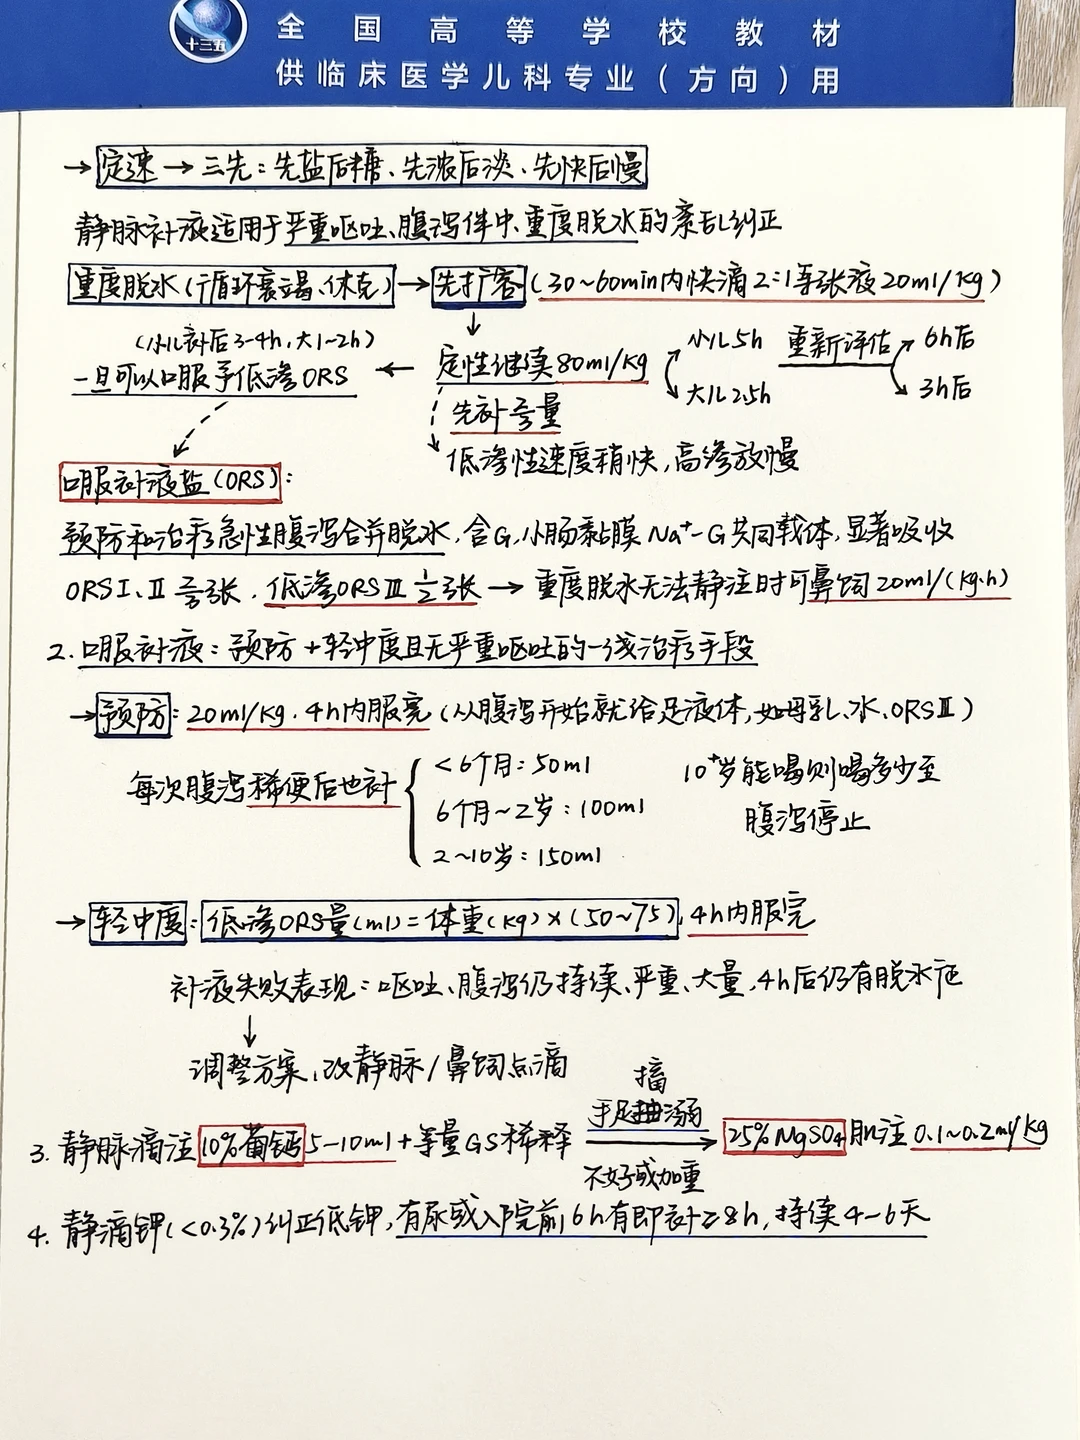 十三五
全国高等学校教材
供临床医学儿科专业（方向）用
→定速→三先：先盐后糖、先浓后淡、先快后慢
静脉补液适用于严重呕吐、腹泻伴中、重度脱水的紊乱纠正
重度脱水（循环衰竭、休克）→先扩容（30~60min内快滴2:1等张液20ml/kg）
↓
（小儿补后3-4h，大1~2h）
一旦可以口服予低渗ORS ← 定性继续80ml/kg 小儿5h 大儿2.5h 重新评估 6h后 3h后
先补
低渗性速度稍快，高渗放慢
口服补液盐（ORS）：
预防和治疗急性腹泻合并脱水，含G，小肠黏膜Na⁺-G共同载体，显著吸收
ORSⅠ、Ⅱ ⅔张，低渗ORSⅢ ½张 → 重度脱水无法静注时可鼻饲20ml/(kg·h)
2. 口服补液：预防+轻中度且无严重呕吐的一线治疗手段
→预防：20ml/kg，4h内服完（从腹泻开始就给足液体，如母乳、水、ORSⅡ）
每次腹泻稀便后也补
<6个月：50ml
6个月~2岁：100ml
2~10岁：150ml
10⁺岁能喝则喝多少至
腹泻停止
→轻中度：低渗ORS量(ml)=体重(kg)×(50~75)，4h内服完
补液失败表现：呕吐、腹泻仍持续、严重、大量，4h后仍有脱水征
↓
调整方案，改静脉/鼻饲点滴
搐
手足抽溺
3. 静脉滴注10%葡钙5-10ml+等量GS稀释 → 25%MgSO₄肌注0.1~0.2ml/kg
不好或加重
4. 静滴钾(<0.3%)纠正低钾，有尿或入院前6h有即补≥8h，持续4-6天